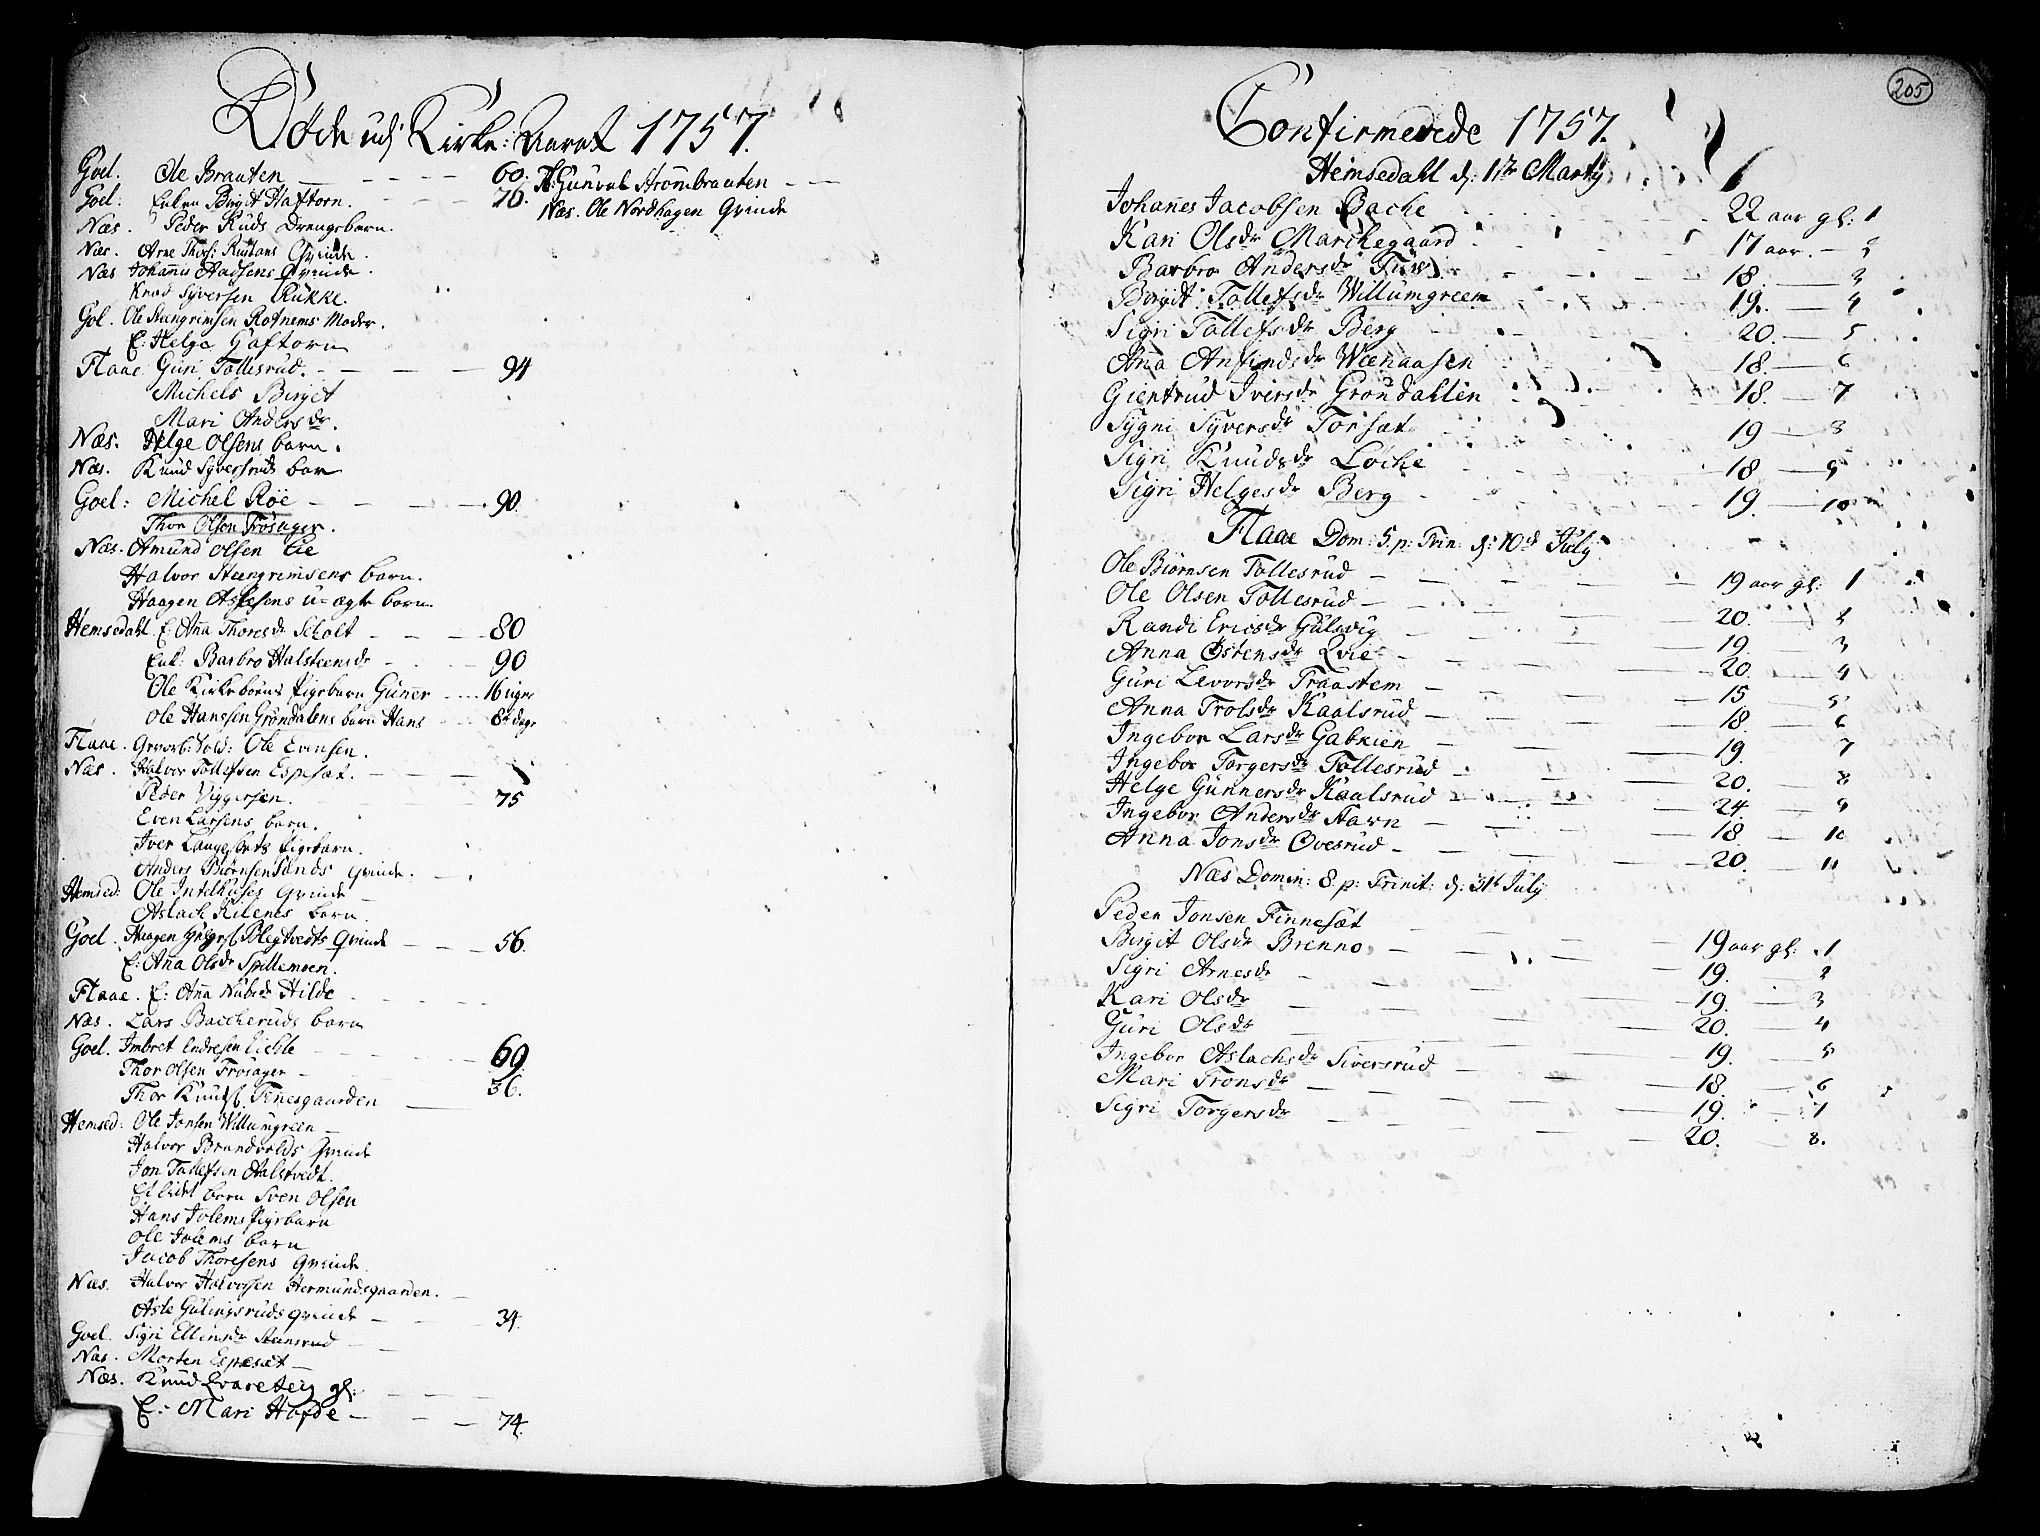 Døde udj Kirke: Aaret 1757.
Goel. Ole Braaten 60.
Goel: Enken Birgit Haftorn. 76.
Næs. Peder Ruds Drengebarn.
Næs. Arne Thors: Rustans Qvinde.
Næs Johannis Aadsens Qvinde.
Knud Syversen Rukke.
Gol. Ole Steengrimsen Rotnems Moder.
E: Helge Haftorn
Flaae Guri Tollesrud. 94
Michels Birgit
Mari Andersdr.
Næs. Helge Olsens barn.
Næs. Knud Syversruds barn
Goel: Michel Røe 90.
Thor Olsen Frøsager.
Næs. Amund Olsen Lie
Halvor Steengrimsens barn.
Haagen Aslesens u-ægte barn.
Hemsedahl E: Anna Thoresdr Scholt 80
Enk: Barbro Halsteensdr 90
Ole Kirkebøens Pigebarn Guner 16 uger
Ole Hanssen Grøndalens barn Hans 8te dage
Flaae. Gevorb: Sold: Ole Evensen.
Næs. Halvor Tollefsen Espesæt.
Peder Viggersen. 75
Even Larsens barn.
Iver Langesæts Pigebarn.
Anders Biørnsen Sands Qvinde.
Hemsed: Ole Intelhuses Qvinde
Aslach Kilenes barn.
Goel. Haagen Blegtvedts Qvinde 56.
E: Ana Olsdr Spillemoen.
Flaae. E: Anna Nubsdr Hilde
Næs. Lars Baccheruds barn
Goel. Imbret Endresen Eichle 69.
Thor Olsen Frøsager 36.
Thor Knuds. Finesgaarden
Hemsed: Ole Jonsen Willumgreen
Halvor Brandvolds Qvinde
Jon Tollefsen Aalstvedt.
Et lidet barn Sven Olsen
Hans Tolems Pigebarn
Ole Tolems barn
Jacob Thoresens Qvinde.
Næs. Halvor Halvorsen Hermundsgaarden.
Asle Gulingsruds Qvinde 34.
Goel. Sigri Ellensdr Steensrud
Næs. Morten Espesæt
Næs. Knud Qvaresteig gl:
E: Mari Hofde 74.
N: Gunvul Strømbraaten
Næs. Ole Nordhagen Qvinde
205
Confirmerede 1757.
Hemsedall d: 17de Martij
Johanes Jacobsen Bache 22 aar gl: 1
Kari Olsdr Marchegaard 17 aar. 2
Barbro Andersdr 18. 3
Birgit Tollefsdr Willumgreen 19. 4
Sigri Tollefsdr Berg 20. 5
Anna Anfindsdr Wænaasen 18. 6
Giertrud Iversdr Grøndahlen 18. 7
Sygni Syversdr Torsæt 19 8
Sigri Knudsdr Løche 18 9
Sigri Helgesdr Berg 19. 10
Flaae Dom: 5 p: Trin: d: 10de July
Ole Biørnsen Tollesrud 19 aar gl: 1
Ole Olsen Tollesrud 20. 2
Randi Ericsdr Gulsvig 19. 3
Anna Østensdr Qvie 20. 4
Guri Levorsdr Traastem 15 5
Anna Trolsdr Kaalsrud 18. 6
Ingebor Larsdr Gabrien 19. 7
Ingebor Torgersdr Tollesrud 20. 8
Helge Gunnersdr Kaalsrud 24. 9
Ingebor Andersdr Stavn 18. 10
Anna Jonsdr Øvesrud 20. 11
Næs Domin: 8. p: Trinit: d: 31te July
Peder Jonsen Finnesæt 19 aar gl: 1
Birgit Olsdr Brenno 19. 2
Sigri Arnesdr 19. 3
Kari Olsdr 20. 4
Guri Olsdr 19. 5
Ingebor Aslachsdr Siversrud 18. 6
Mari Tronsdr 19. 7
Sigri Torgersdr 20. 8.